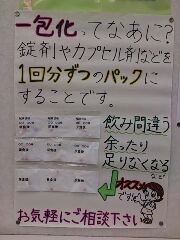 一包化ってなあに?
錠剤やカプセル剤などを
1回分ずつのパックに
することです。
飲み間違う
余ったり
足りなくなる
など
オススメ
です
お気軽にご相談下さい